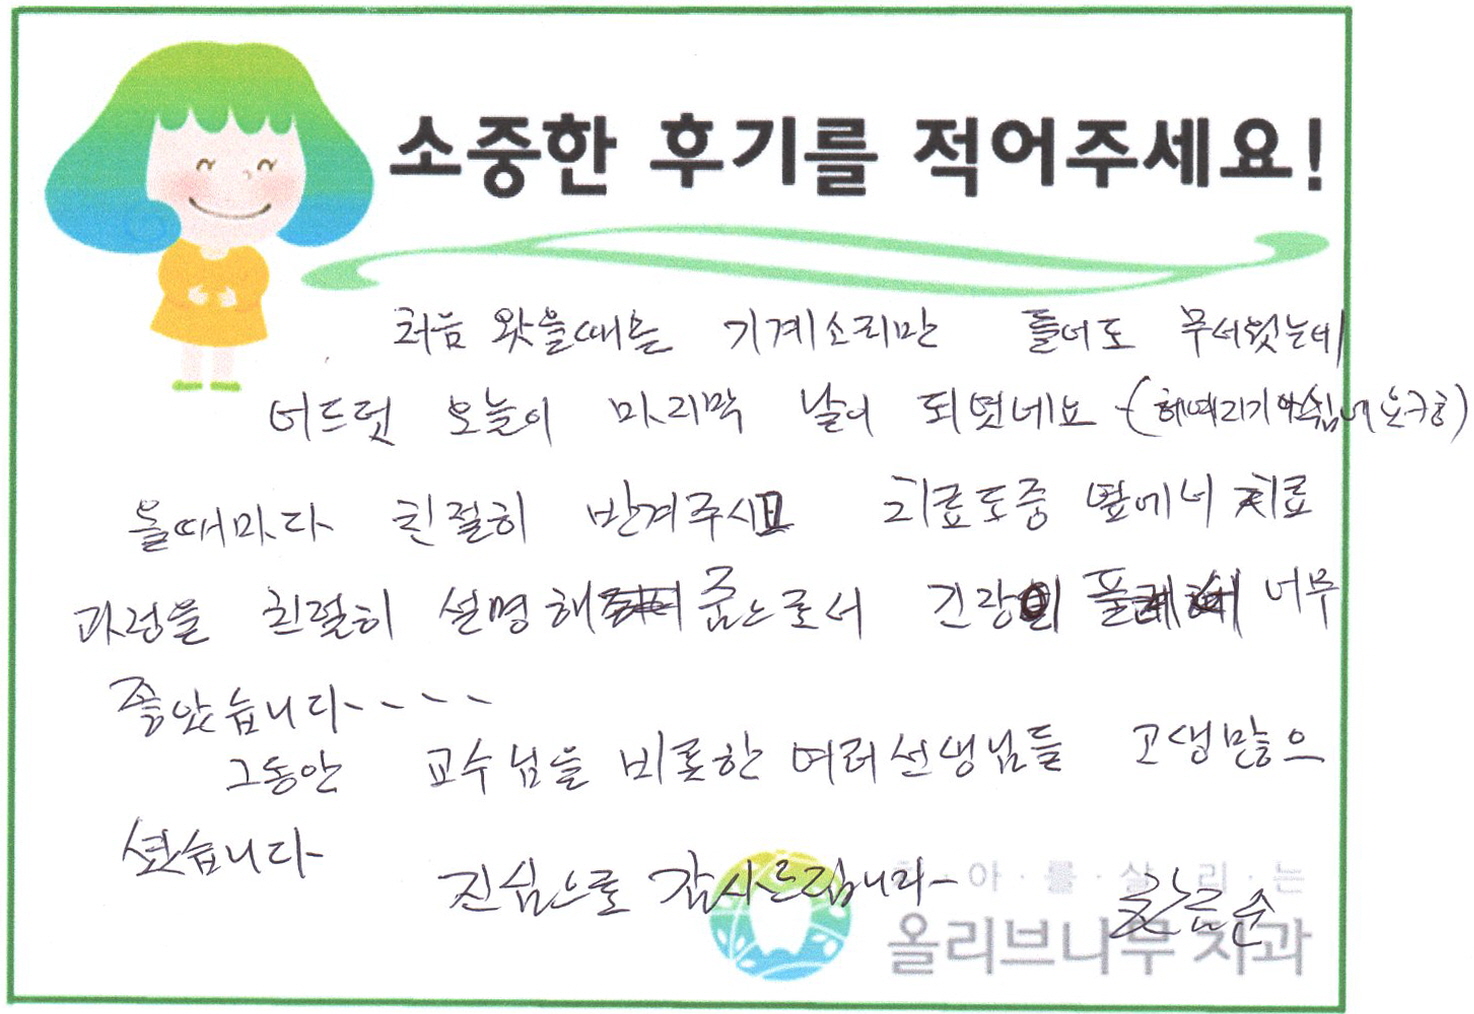 소중한 후기를 적어주세요!
처음 왔을때는 기계소리만 들어도 무서웠는데
어느덧 오늘이 마지막 날이 되었네요 - (헤여지기 아쉽네요 ㅋㅎ)
올때마다 친절히 반겨주시고 치료도중 옆에서 치료
과정을 친절히 설명해 줌으로서 긴장이 풀려 너무
좋았습니다- - - -
그동안 교수님을 비롯한 여러선생님들 고생많으
셨습니다
진심으로 감사드립니다-
아·를·살·리·는
올리브나무 치과